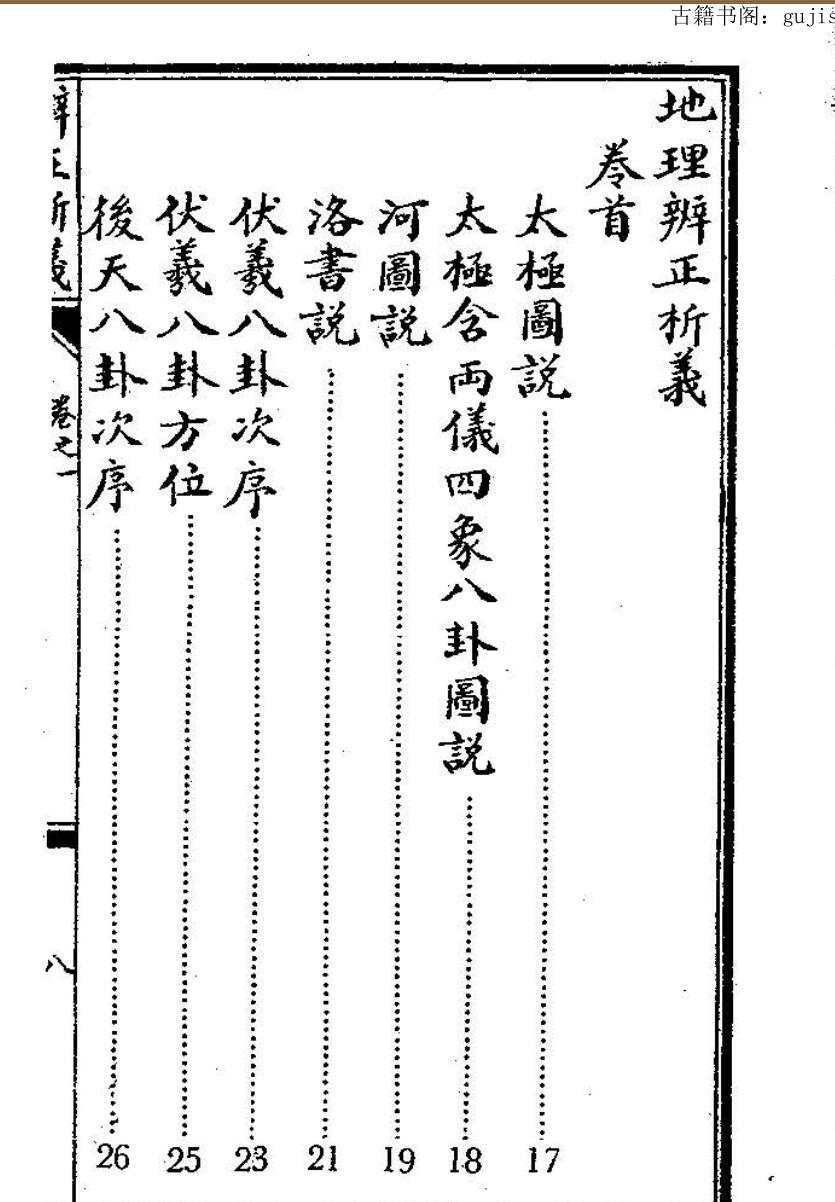 古籍书阁：guji
地理辨正析義
卷首
太極圖説 17
太極含兩儀四象八卦圖説 18
河圖説 19
洛書説 21
伏羲八卦次序 23
伏羲八卦方位 25
後天八卦次序 26
辨正析義
卷之一
八